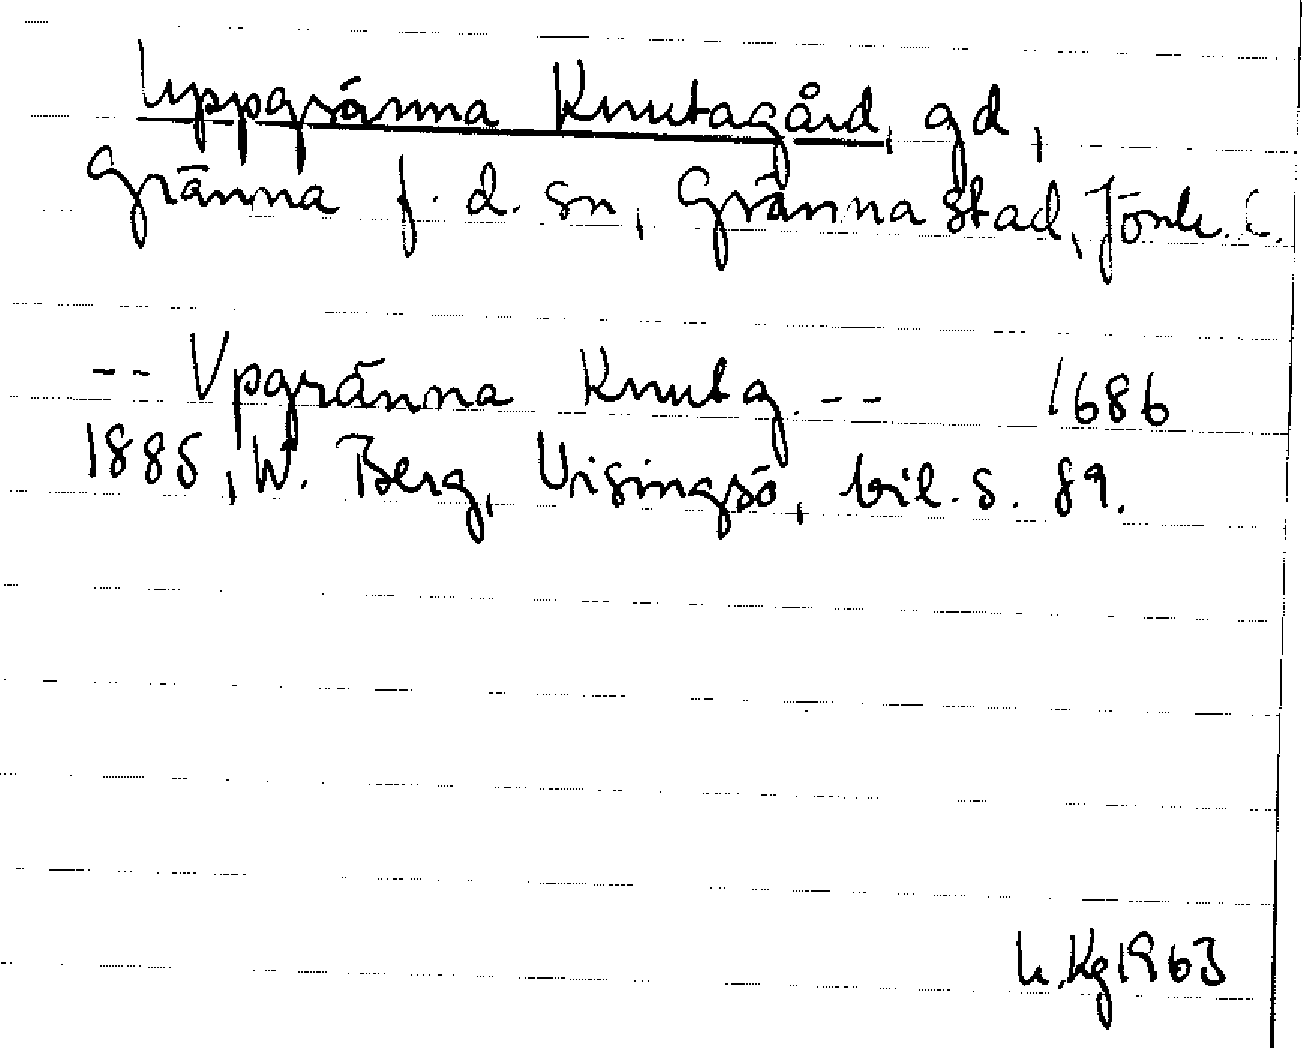 Uppgränna Knutagård, gd,
Gränna f.d. sn, Gränna stad, Jönk. l.
-- Vpgränna Knutg. -- 1686
1885, W. Berg, Visingsö, bil. s. 89.
Kg 1963